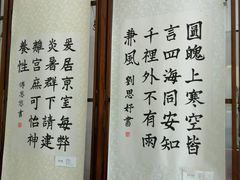 圓魄上寒空皆
言四海同安知
千裡外不有雨
兼風 劉思妤書
爰居京室每弊
炎暑群下請建
離宮庶可怡神
養性 傅書